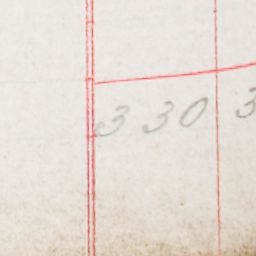 330 3